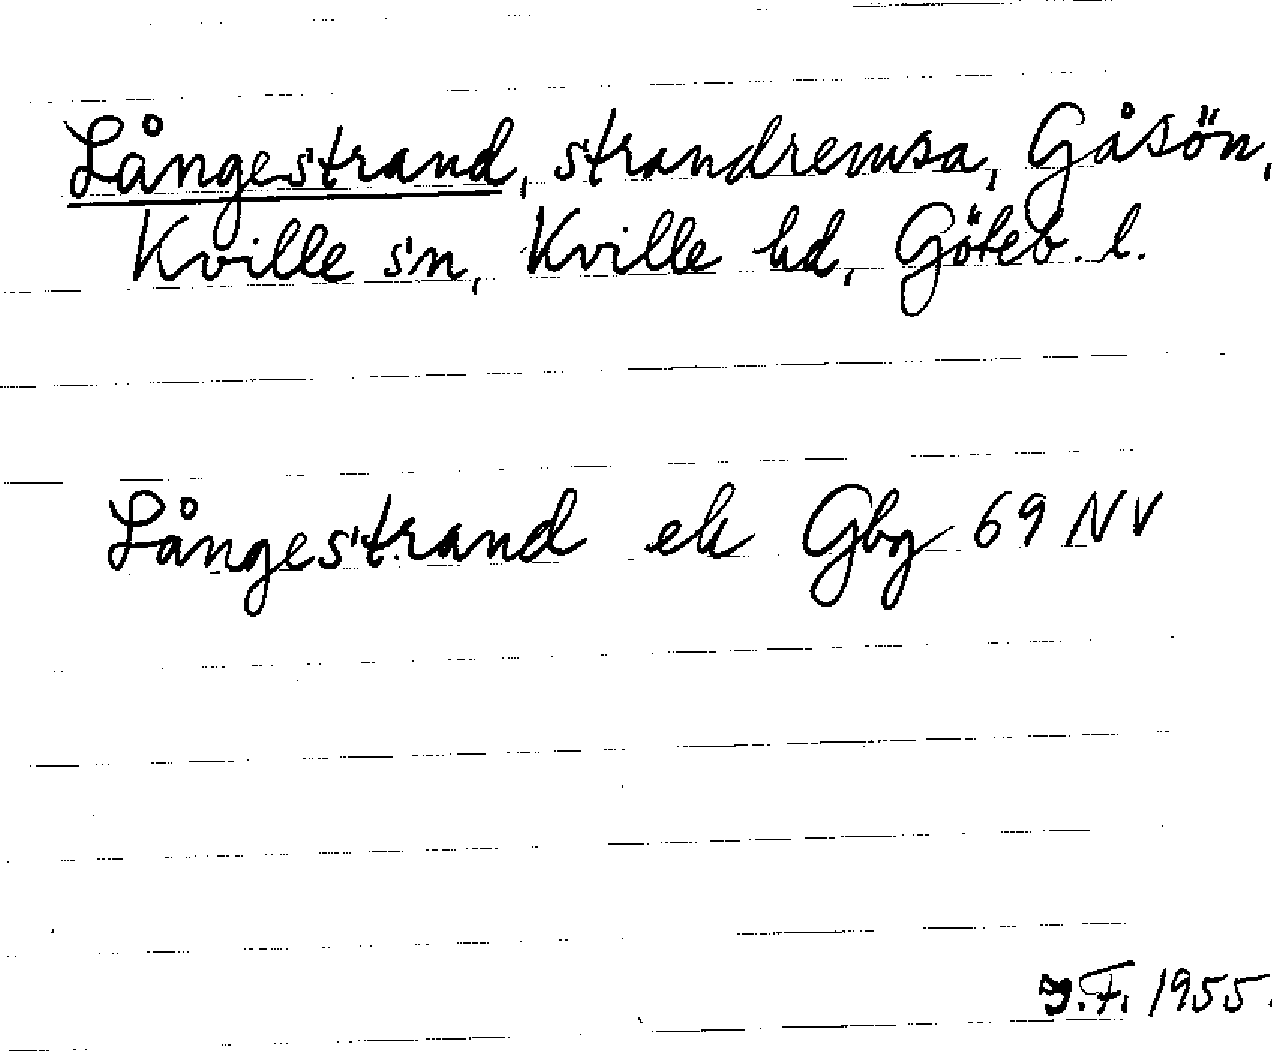 Långestrand, strandremsa, Gåsön,
Kville sn, Kville hd, Göteb. l.
Långestrand ek Gbg 69 NV
J.F. 1955.